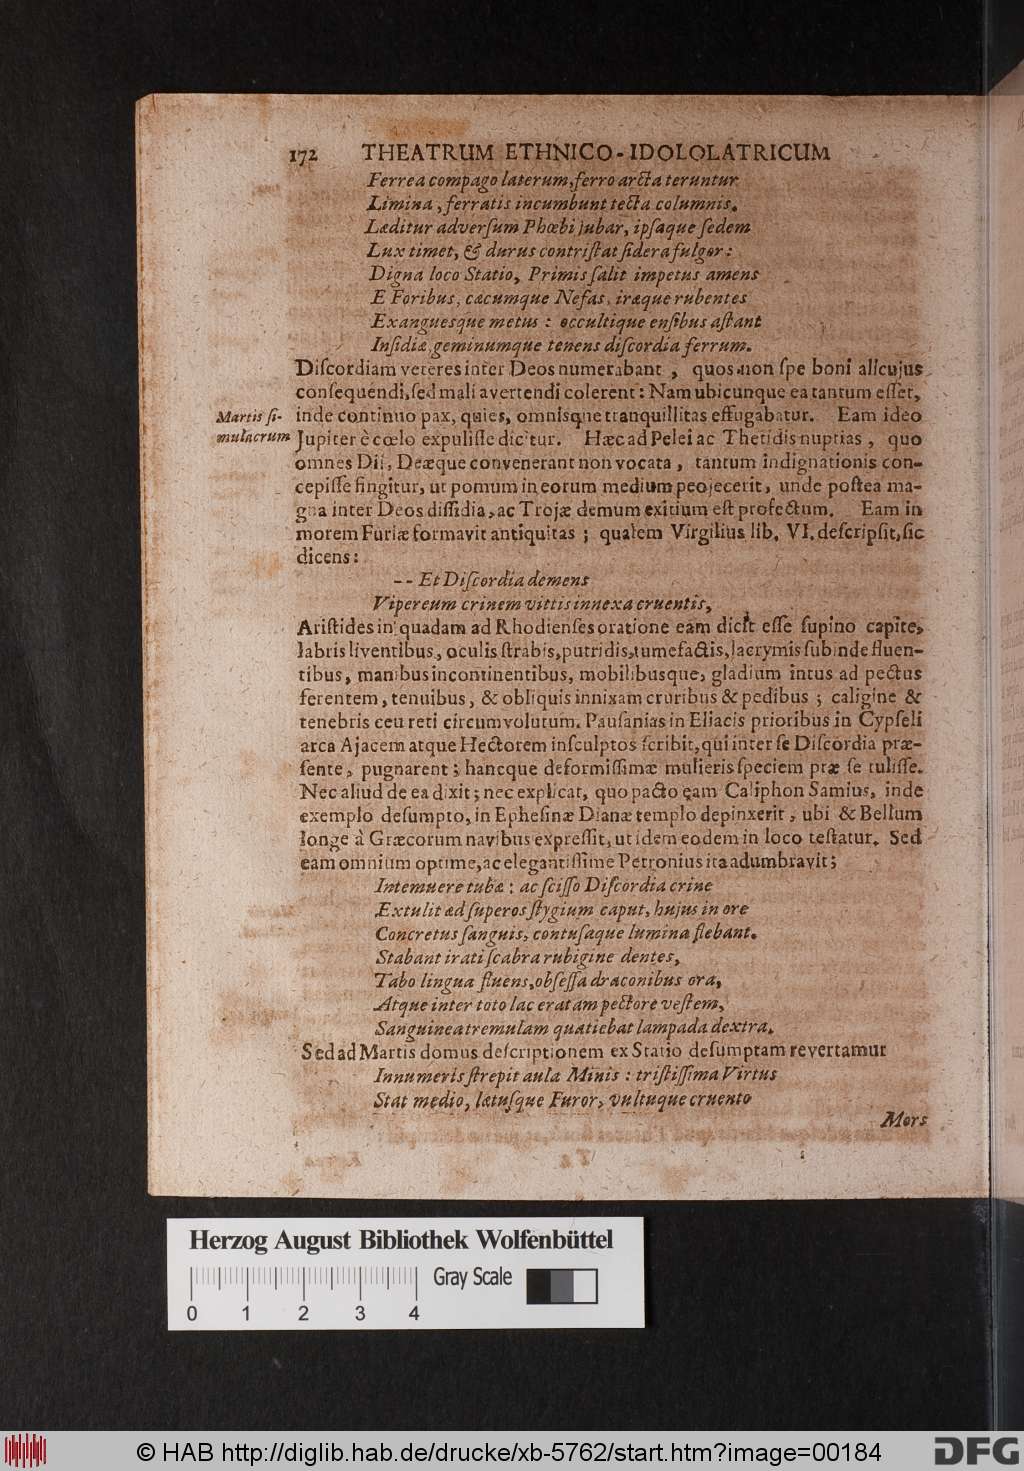 172 THEATRUM ETHNICO-IDOLOLATRICUM
Ferrea compago laterum, ferro arcta teruntur
Limina, ferratis incumbunt tecta columnis.
Læditur adverſum Phœbi jubar, ipſaque ſedem
Lux timet, & durus contriſtat ſidera fulgor:
Digna loco Statio, Primis ſalit impetus amens
E Foribus, cæcumque Nefas, iræque rubentes
Exanguesque metus: occultique enſibus aſtant
Inſidiæ, geminumque tenens diſcordia ferrum.
Diſcordiam veteres inter Deos numerabant, quos non ſpe boni alicujus
conſequendi, ſed mali avertendi colerent: Nam ubicunque ea tantum eſſet,
Martis ſi-
mulacrum
inde continuo pax, quies, omnisque tranquillitas effugabatur. Eam ideo
Jupiter è cœlo expuliſſe dicitur. Hæc ad Pelei ac Thetidis nuptias, quo
omnes Dii, Deæque convenerant non vocata, tantum indignationis con-
cepiſſe fingitur, ut pomum in eorum medium peojecerit, unde poſtea ma-
gna inter Deos diſſidia, ac Trojæ demum exitium eſt profectum. Eam in
morem Furiæ formavit antiquitas; qualem Virgilius lib. VI. deſcripſit, ſic
dicens:
-- Et Diſcordia demens
Vipereum crinem vittis innexa cruentis,
Ariſtides in quadam ad Rhodienſes oratione eam dicit eſſe ſupino capite,
labris liventibus, oculis ſtrabis, putridis, tumefactis, lacrymis ſubinde fluen-
tibus, manibus incontinentibus, mobilibusque, gladium intus ad pectus
ferentem, tenuibus, & obliquis innixam cruribus & pedibus; caligine &
tenebris ceu reti circumvolutum. Pauſanias in Eliacis prioribus in Cypſeli
arca Ajacem atque Hectorem inſculptos ſcribit, qui inter ſe Diſcordia præ-
ſente, pugnarent; hancque deformiſſimæ mulieris ſpeciem præ ſe tuliſſe.
Nec aliud de ea dixit; nec explicat, quo pacto eam Caliphon Samius, inde
exemplo deſumpto, in Epheſinæ Dianæ templo depinxerit, ubi & Bellum
longe à Græcorum navibus expreſſit, ut idem eodem in loco teſtatur. Sed
eam omnium optime, ac elegantiſſime Petronius ita adumbravit;
Intemuere tubæ: ac ſciſſo Diſcordia crine
Extulit ad ſuperos ſtygium caput, hujus in ore
Concretus ſanguis, contuſaque lumina flebant.
Stabant irati ſcabra rubigine dentes,
Tabo lingua fluens, obſeſſa draconibus ora,
Atque inter toto laceratam pectore veſtem,
Sanguinea tremulam quatiebat lampada dextra.
Sed ad Martis domus deſcriptionem ex Statio deſumptam revertamur
Innumeris ſtrepit aula Minis: triſtiſſima Virtus
Stat medio, lætuſque Furor, vultuque cruento
Mors
Herzog August Bibliothek Wolfenbüttel
Gray Scale
0 1 2 3 4
© HAB http://diglib.hab.de/drucke/xb-5762/start.htm?image=00184
DFG